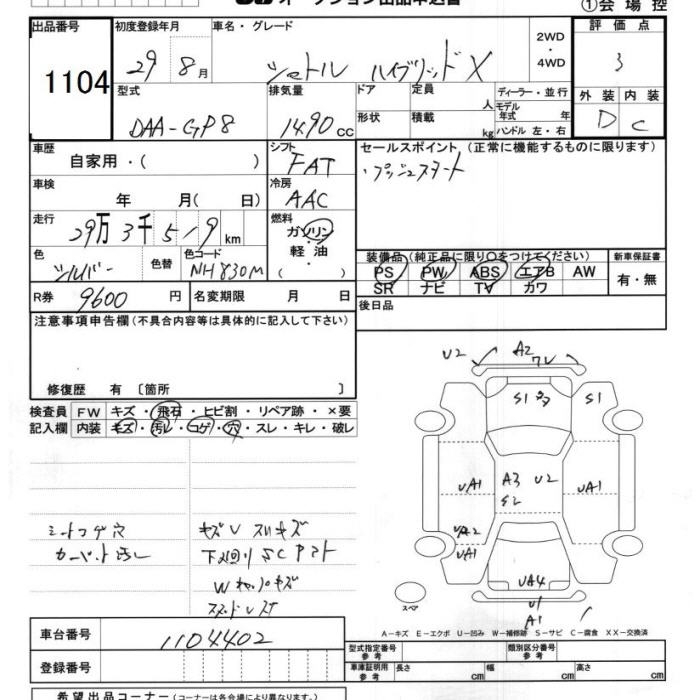 ①会場控
出品番号 初度登録年月 車名・グレード 2WD・4WD 評価点
1104 29年8月 シャトル ハイブリッド X 3
型式 排気量 ドア 定員 人 ディーラー・並行 外装 内装
DAA-GP8 1490cc 形状 積載 kg モデル年式 年 ハンドル 左・右 D C
車歴 シフト セールスポイント (正常に機能するものに限ります)
自家用・( ) FAT ・プッシュスタート
車検 冷房
年 月( 日) AAC
走行 燃料
29万3千519km ガソリン・軽油・( )
色 色替 色コード 装備品 (純正品に限り○をつけてください) 新車保証書
シルバー NH830M PS PW ABS エアB AW 有・無
SR ナビ TV カワ
R券 9600円 名変期限 月 日 後日品
注意事項申告欄(不具合内容等は具体的に記入して下さい)
修復歴 有 [箇所 ]
検査員記入欄 FW キズ・飛石・ヒビ割・リペア跡・×要
内装 キズ・汚レ・コゲ・穴・スレ・キレ・破レ
シートコゲ穴
カーペット汚レ
キズU スリキズ
下廻りSC
Wキャップキズ
U2 A2 ワレ
S1 S1
UA1 A3 U2 UA1
S2
UA2
UA1 UA1
UA4
U1
A1
スペア
A-キズ E-エクボ U-凹み W-補修跡 S-サビ C-腐食 XX-交換済
車台番号 1104402
登録番号
型式指定番号 参考 類別区分番号 参考
車庫証明用 参考 長さ cm 幅 cm 高さ cm
希望出品コーナー (コーナーは各会場により異なります。)